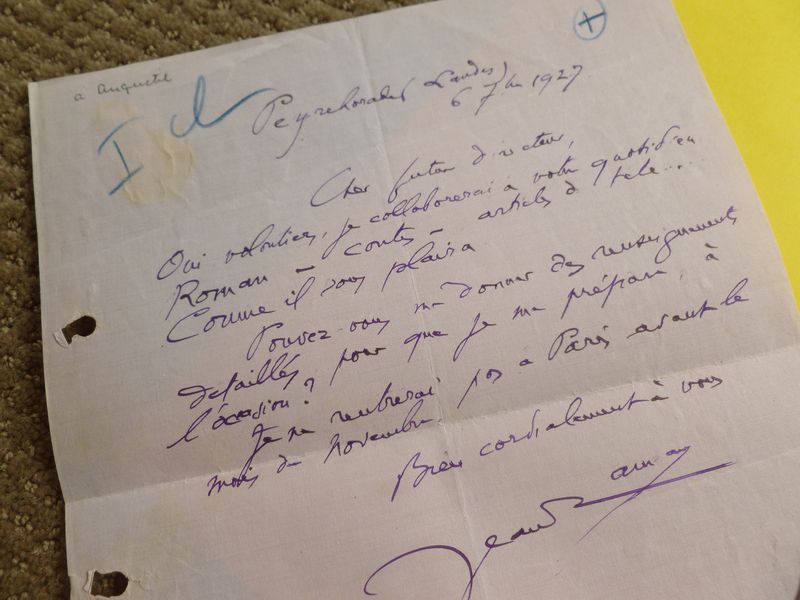 a Anquetil
Peyrehorade (Landes)
6 7bre 1927
Cher futur directeur,
Oui volontiers, je collaborerai à votre quotidien
Roman - contes - articles de tête....
Comme il vous plaira
Pouvez-vous me donner des renseignements
détaillés, pour que je me prépare, à
l'occasion?
Je ne rentrerai pas à Paris avant le
mois de Novembre
Bien cordialement à vous
Jean Rameau